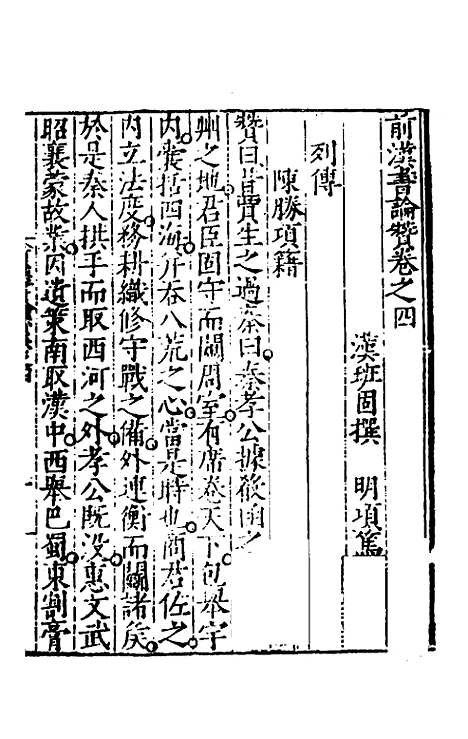 前漢書論贊卷之四
漢班固撰　明項篤
列傳
陳勝項籍
贊曰昔賈生之過秦曰秦孝公據殽函之
州之地君臣固守而闚周室有席卷天下包舉宇
内囊括四海并吞八荒之心當是時也商君佐之
内立法度務耕織修守戰之備外連衡而鬬諸矦
於是秦人拱手而取西河之外孝公既没惠文武
昭襄蒙故業因遺策南取漢中西舉巴蜀東割膏